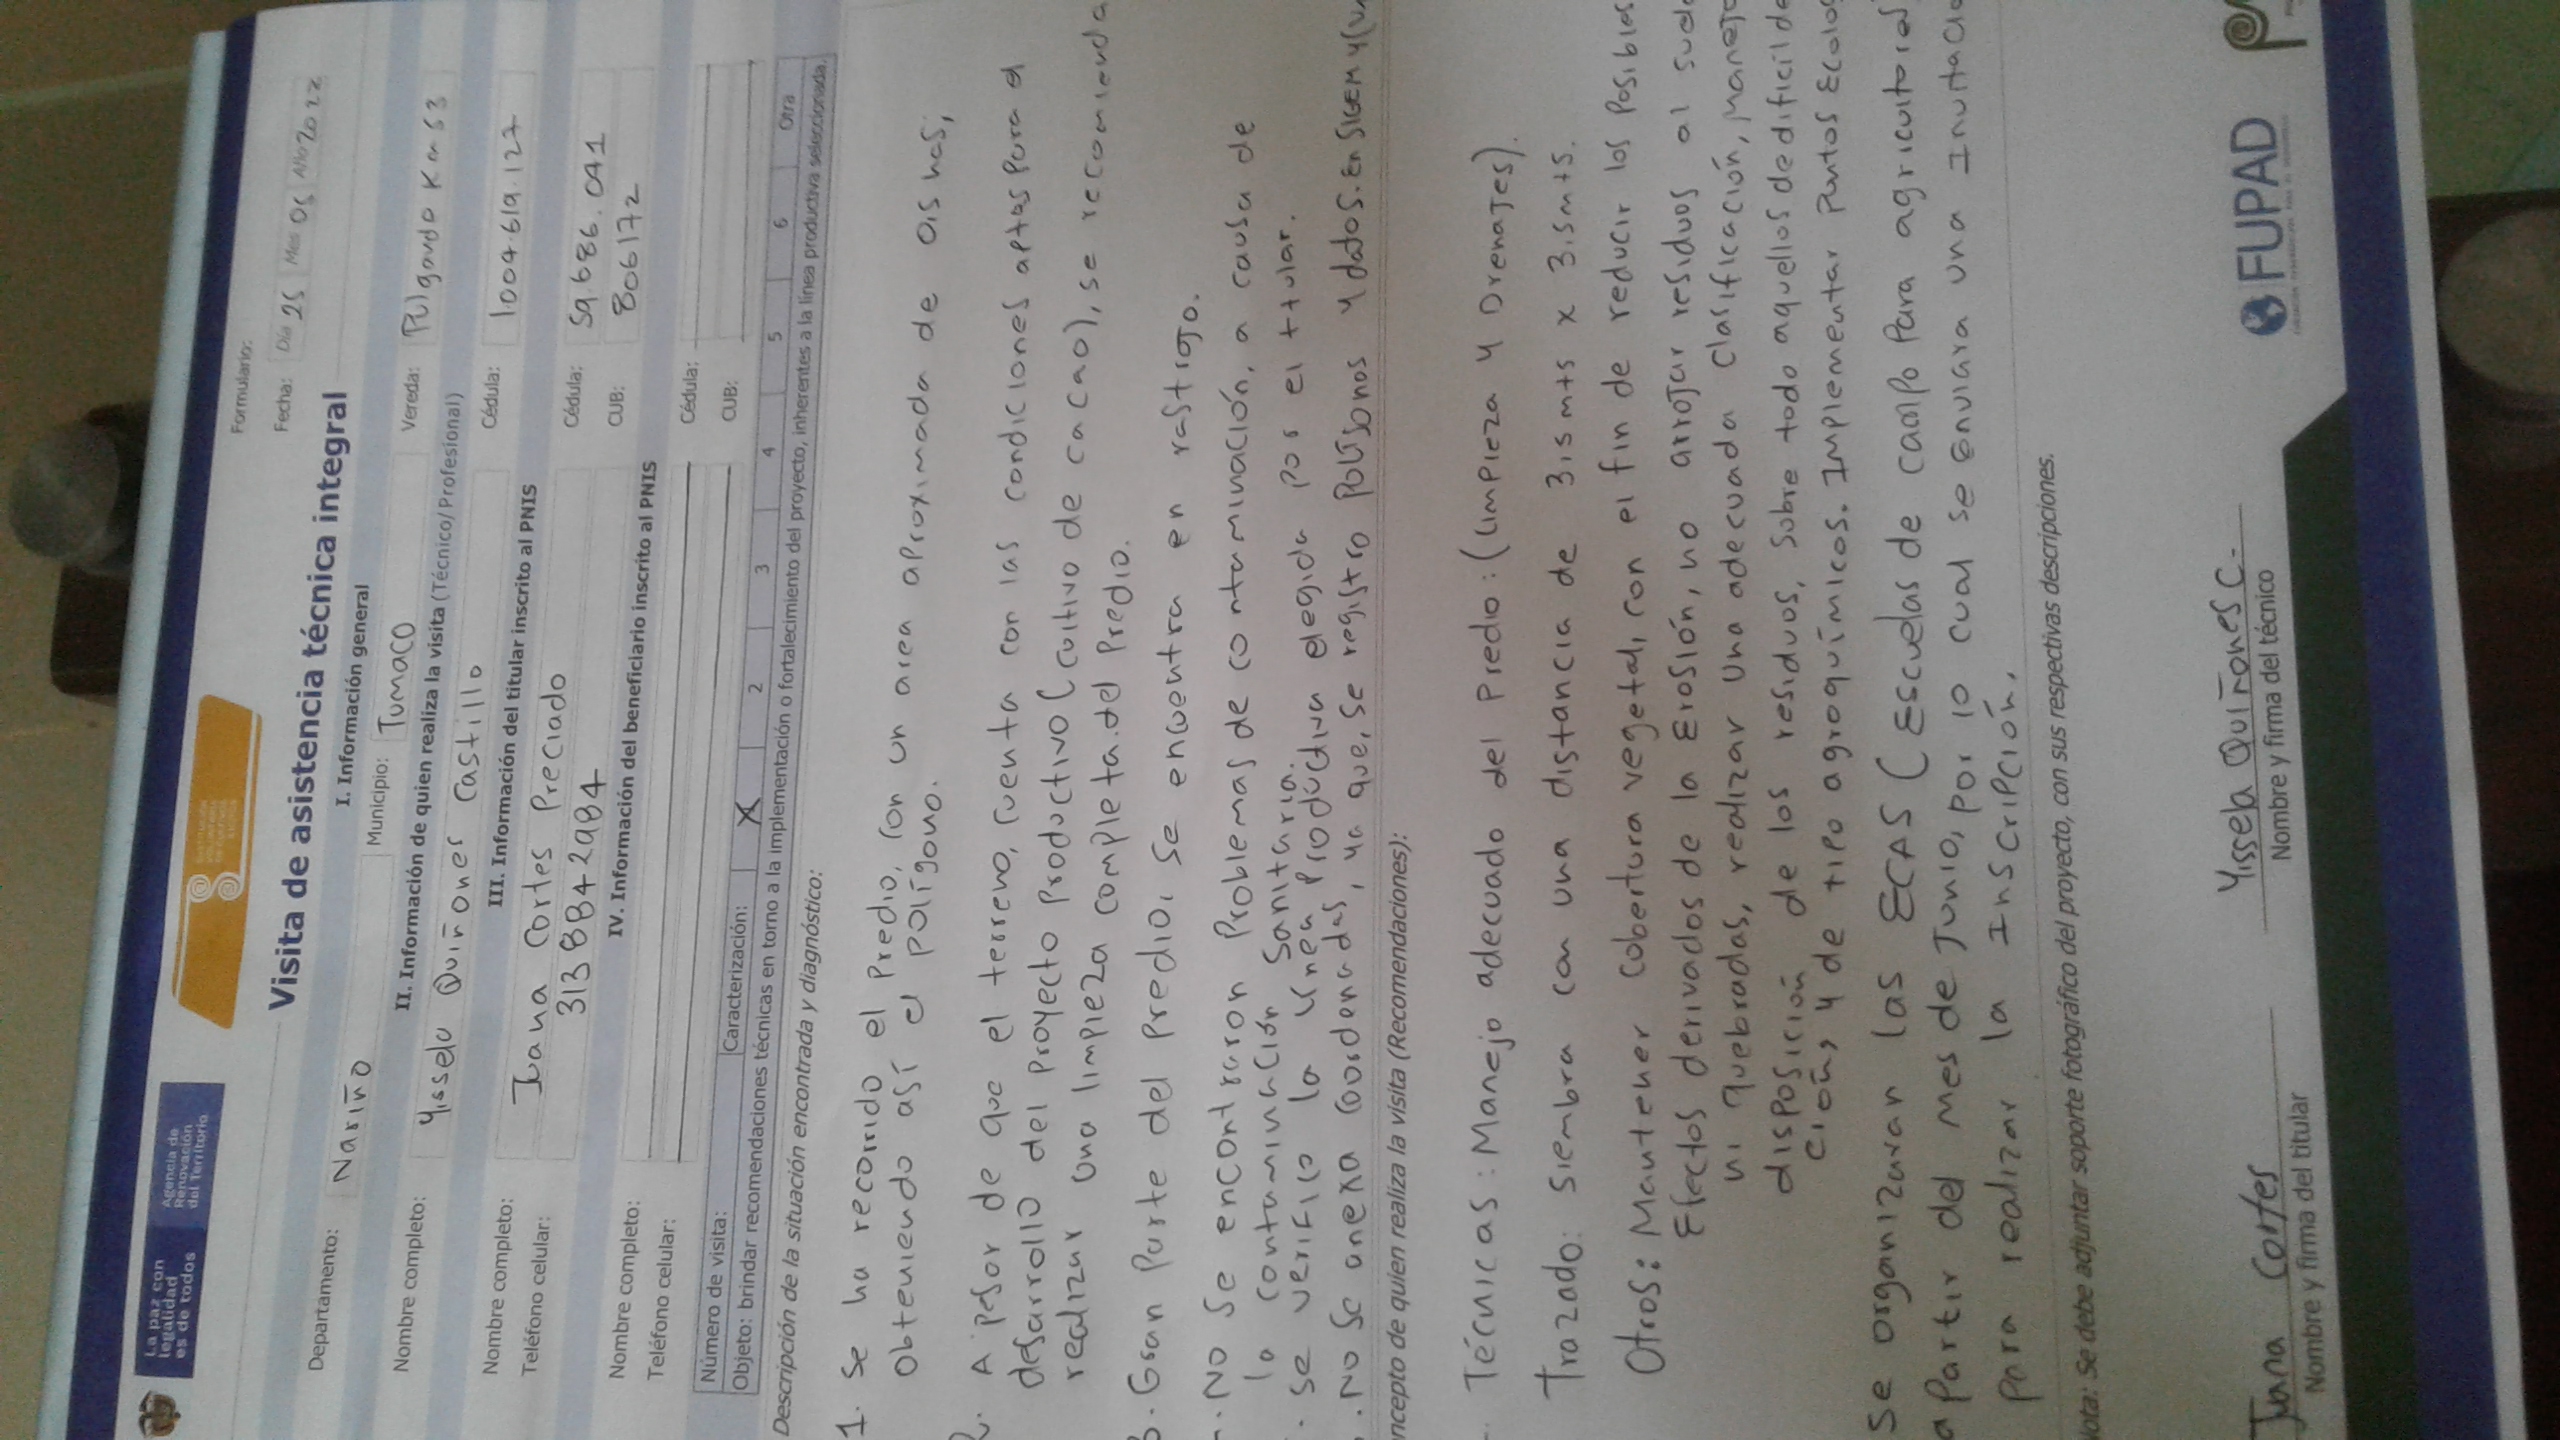 La paz con
legalidad
es de todos
Agencia de
Renovación
del Territorio
Formulario:
Visita de asistencia técnica integral
Fecha: Día 25 Mes 05 Año 2022
I. Información general
Departamento: Nariño Municipio: Tumaco Vereda: Pulgando Km 53
II. Información de quien realiza la visita (Técnico/Profesional)
Nombre completo: Yissela Quiñones Castillo Cédula: 1004.619.127
III. Información del titular inscrito al PNIS
Nombre completo: Juana Cortes Preciado Cédula: 59.686.041
Teléfono celular: 3138842984 CUB: 806172
IV. Información del beneficiario inscrito al PNIS
Nombre completo: Cédula:
Teléfono celular: CUB:
Número de visita: Caracterización: X 2 3 4 5 6 Otra
Objeto: brindar recomendaciones técnicas en torno a la implementación o fortalecimiento del proyecto, inherentes a la línea productiva seleccionada.
Descripción de la situación encontrada y diagnóstico:
1. Se ha recorrido el predio, con un area aproximada de 0.15 has,
obteniendo así el polígono.
2. A pesar de que el terreno, cuenta con las condiciones aptas para el
desarrollo del proyecto productivo (cultivo de cacao), se recomienda
realizar una limpieza completa del predio.
3. Gran parte del predio, se encuentra en rastrojo.
No se encontraron problemas de contaminación, a causa de
la contaminación sanitaria.
Se verifico la linea productiva elegida por el titular.
No se anexa coordenadas, ya que, se registro polígonos y datos. en SIGEM y
ncepto de quien realiza la visita (Recomendaciones):
Técnicas: Manejo adecuado del predio: (Limpieza y Drenajes).
Trazado: siembra con una distancia de 3.5 mts x 3.5 mts.
Otros: Mantener cobertura vegetal, con el fin de reducir los posibles
Efectos derivados de la Erosión, no arrojar residuos al suelo
ni quebradas, realizar una adecuada clasificación, manejo
disposición de los residuos, sobre todo aquellos de dificil de
y de tipo agroquímicos. Implementar Puntos Ecolog
Se organizaran las ECAS (Escuelas de campo para agricultores)
a partir del mes de Junio, por lo cual se enviara una Invitació
para realizar la Inscripción.
Nota: Se debe adjuntar soporte fotográfico del proyecto, con sus respectivas descripciones.
Juana Cortes
Nombre y firma del titular
Yissela Quiñones C.
Nombre y firma del técnico
FUPAD